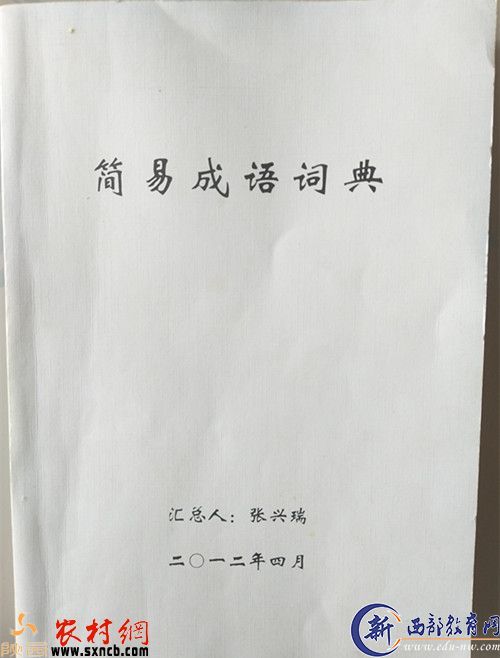 简易成语词典
汇总人：张兴瑞
二〇一二年四月
陕西
农村網
www.sxncb.com
新西部教育网
www.edu-nw.com